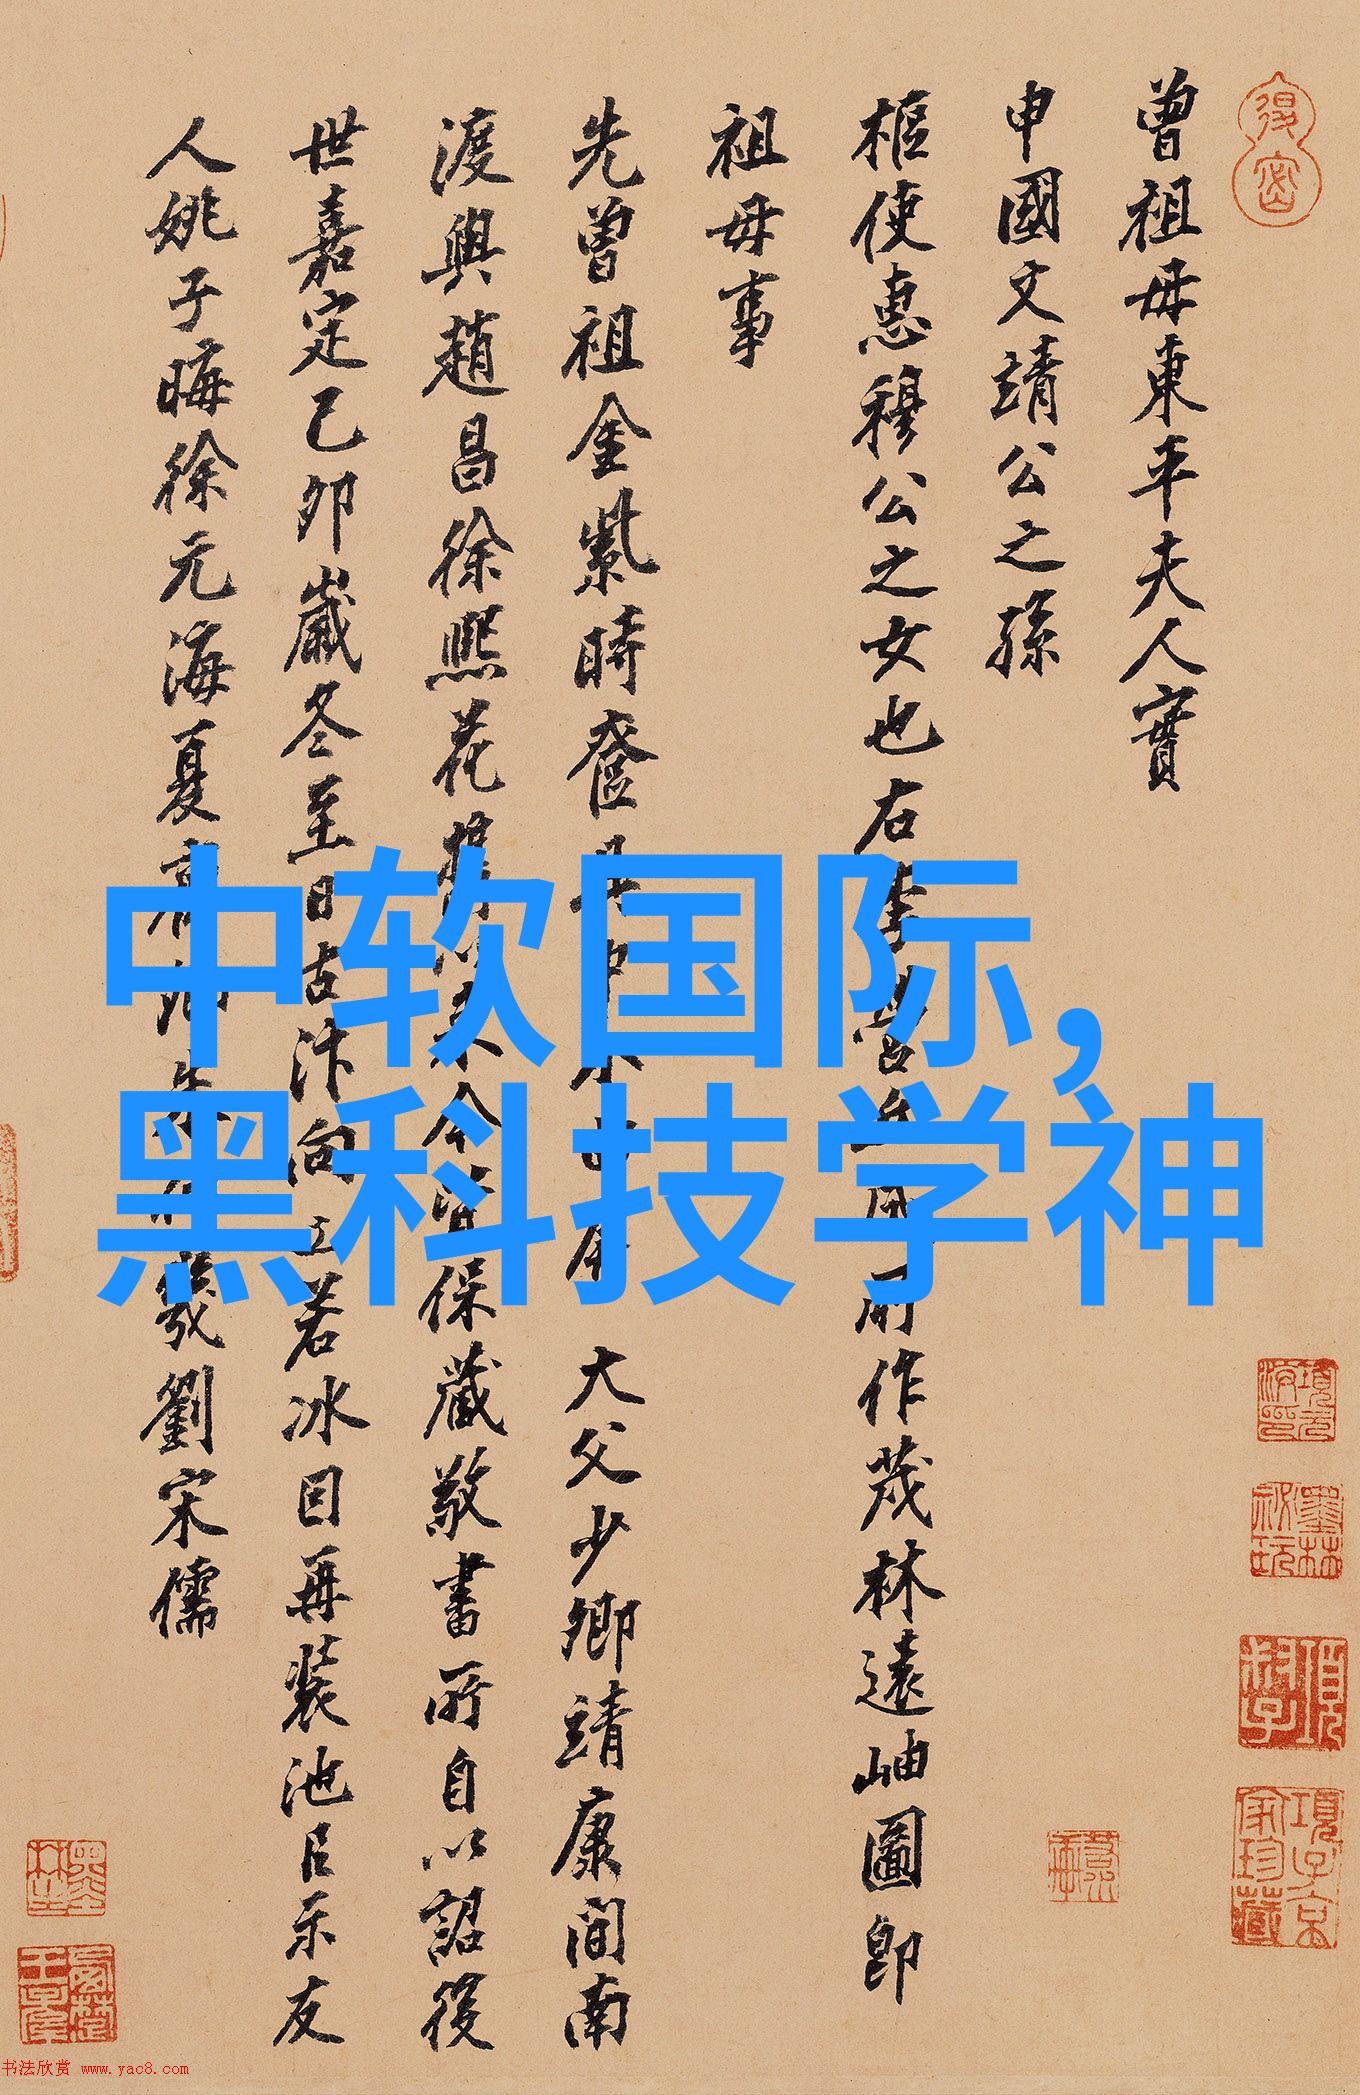 曾祖母東平夫人實
申國文靖公之孫
樞使惠穆公之女也右丞
作茂林遠岫圖即
祖母事
先曾祖金紫時
大父少卿靖康間南
渡與趙昌徐熙花
令皆保藏敬書所自以詔後
世嘉定己卯歲冬至日古汴向
若冰因再裝池呂示友
人姚子晦徐元海夏
劉宋儒
中软国际,
黑科技学神
书法欣赏 www.yac8.com